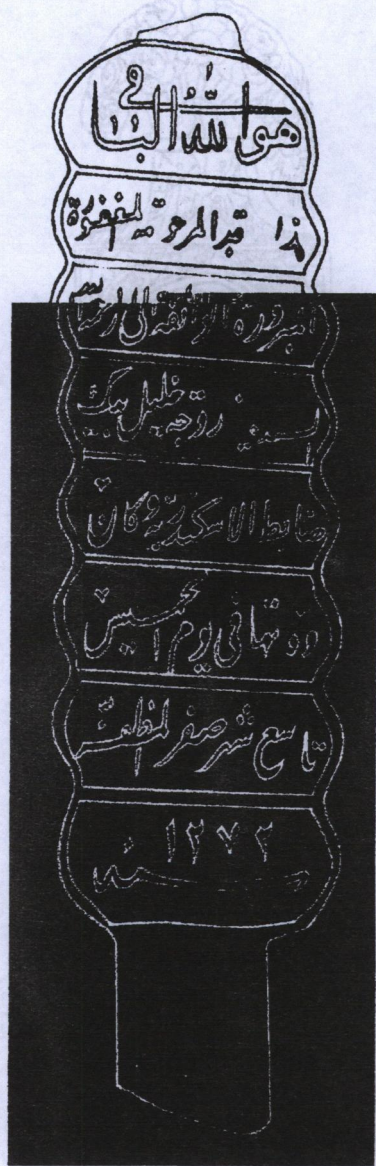 هو الله الباقي
هذا قبر المرحومة المغفورة
المبرورة
زوجه خليل بيك
ضابط الاسكندريه وكان
وفاتها في يوم الخميس
تاسع شهر صفر المظفر
١٢٧٢
سنه